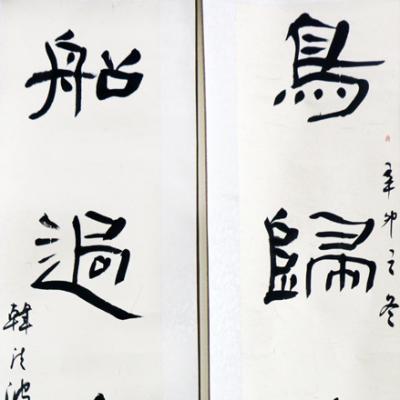 鳥歸
辛卯之冬
船過
韓法